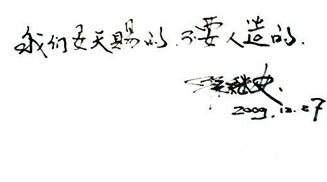 我们是天赐的,不要人造的.
2009.12.27